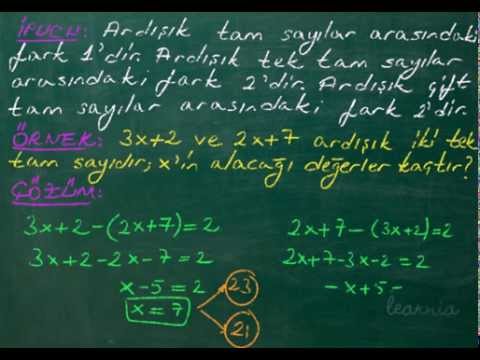 İPUCU: Ardışık tam sayılar arasındaki
fark 1'dir. Ardışık tek tam sayılar
arasındaki fark 2'dir. Ardışık çift
tam sayılar arasındaki fark 2'dir.
ÖRNEK: 3x+2 ve 2x+7 ardışık iki tek
tam sayıdır; x'in alacağı değerler kaçtır?
ÇÖZÜM:
3x+2-(2x+7)=2
3x+2-2x-7=2
x-5=2
x=7
23
21
2x+7-(3x+2)=2
2x+7-3x-2=2
-x+5-
learnia